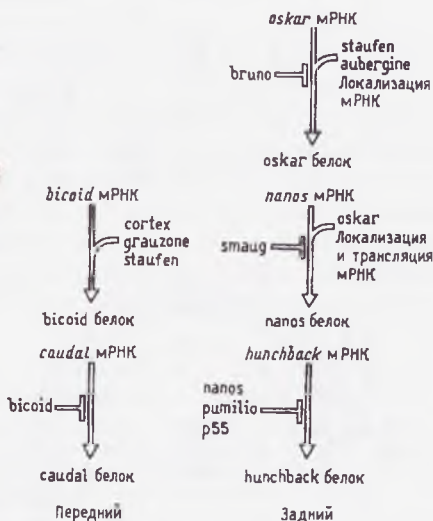 oskar мРНК
bruno
staufen
aubergine
Локализация
мРНК
oskar белок
bicoid мРНК
cortex
grauzone
staufen
bicoid белок
nanos мРНК
smaug
oskar
Локализация
и трансляция
мРНК
nanos белок
caudal мРНК
bicoid
caudal белок
hunchback мРНК
nanos
pumilio
p55
hunchback белок
Передний
Задний